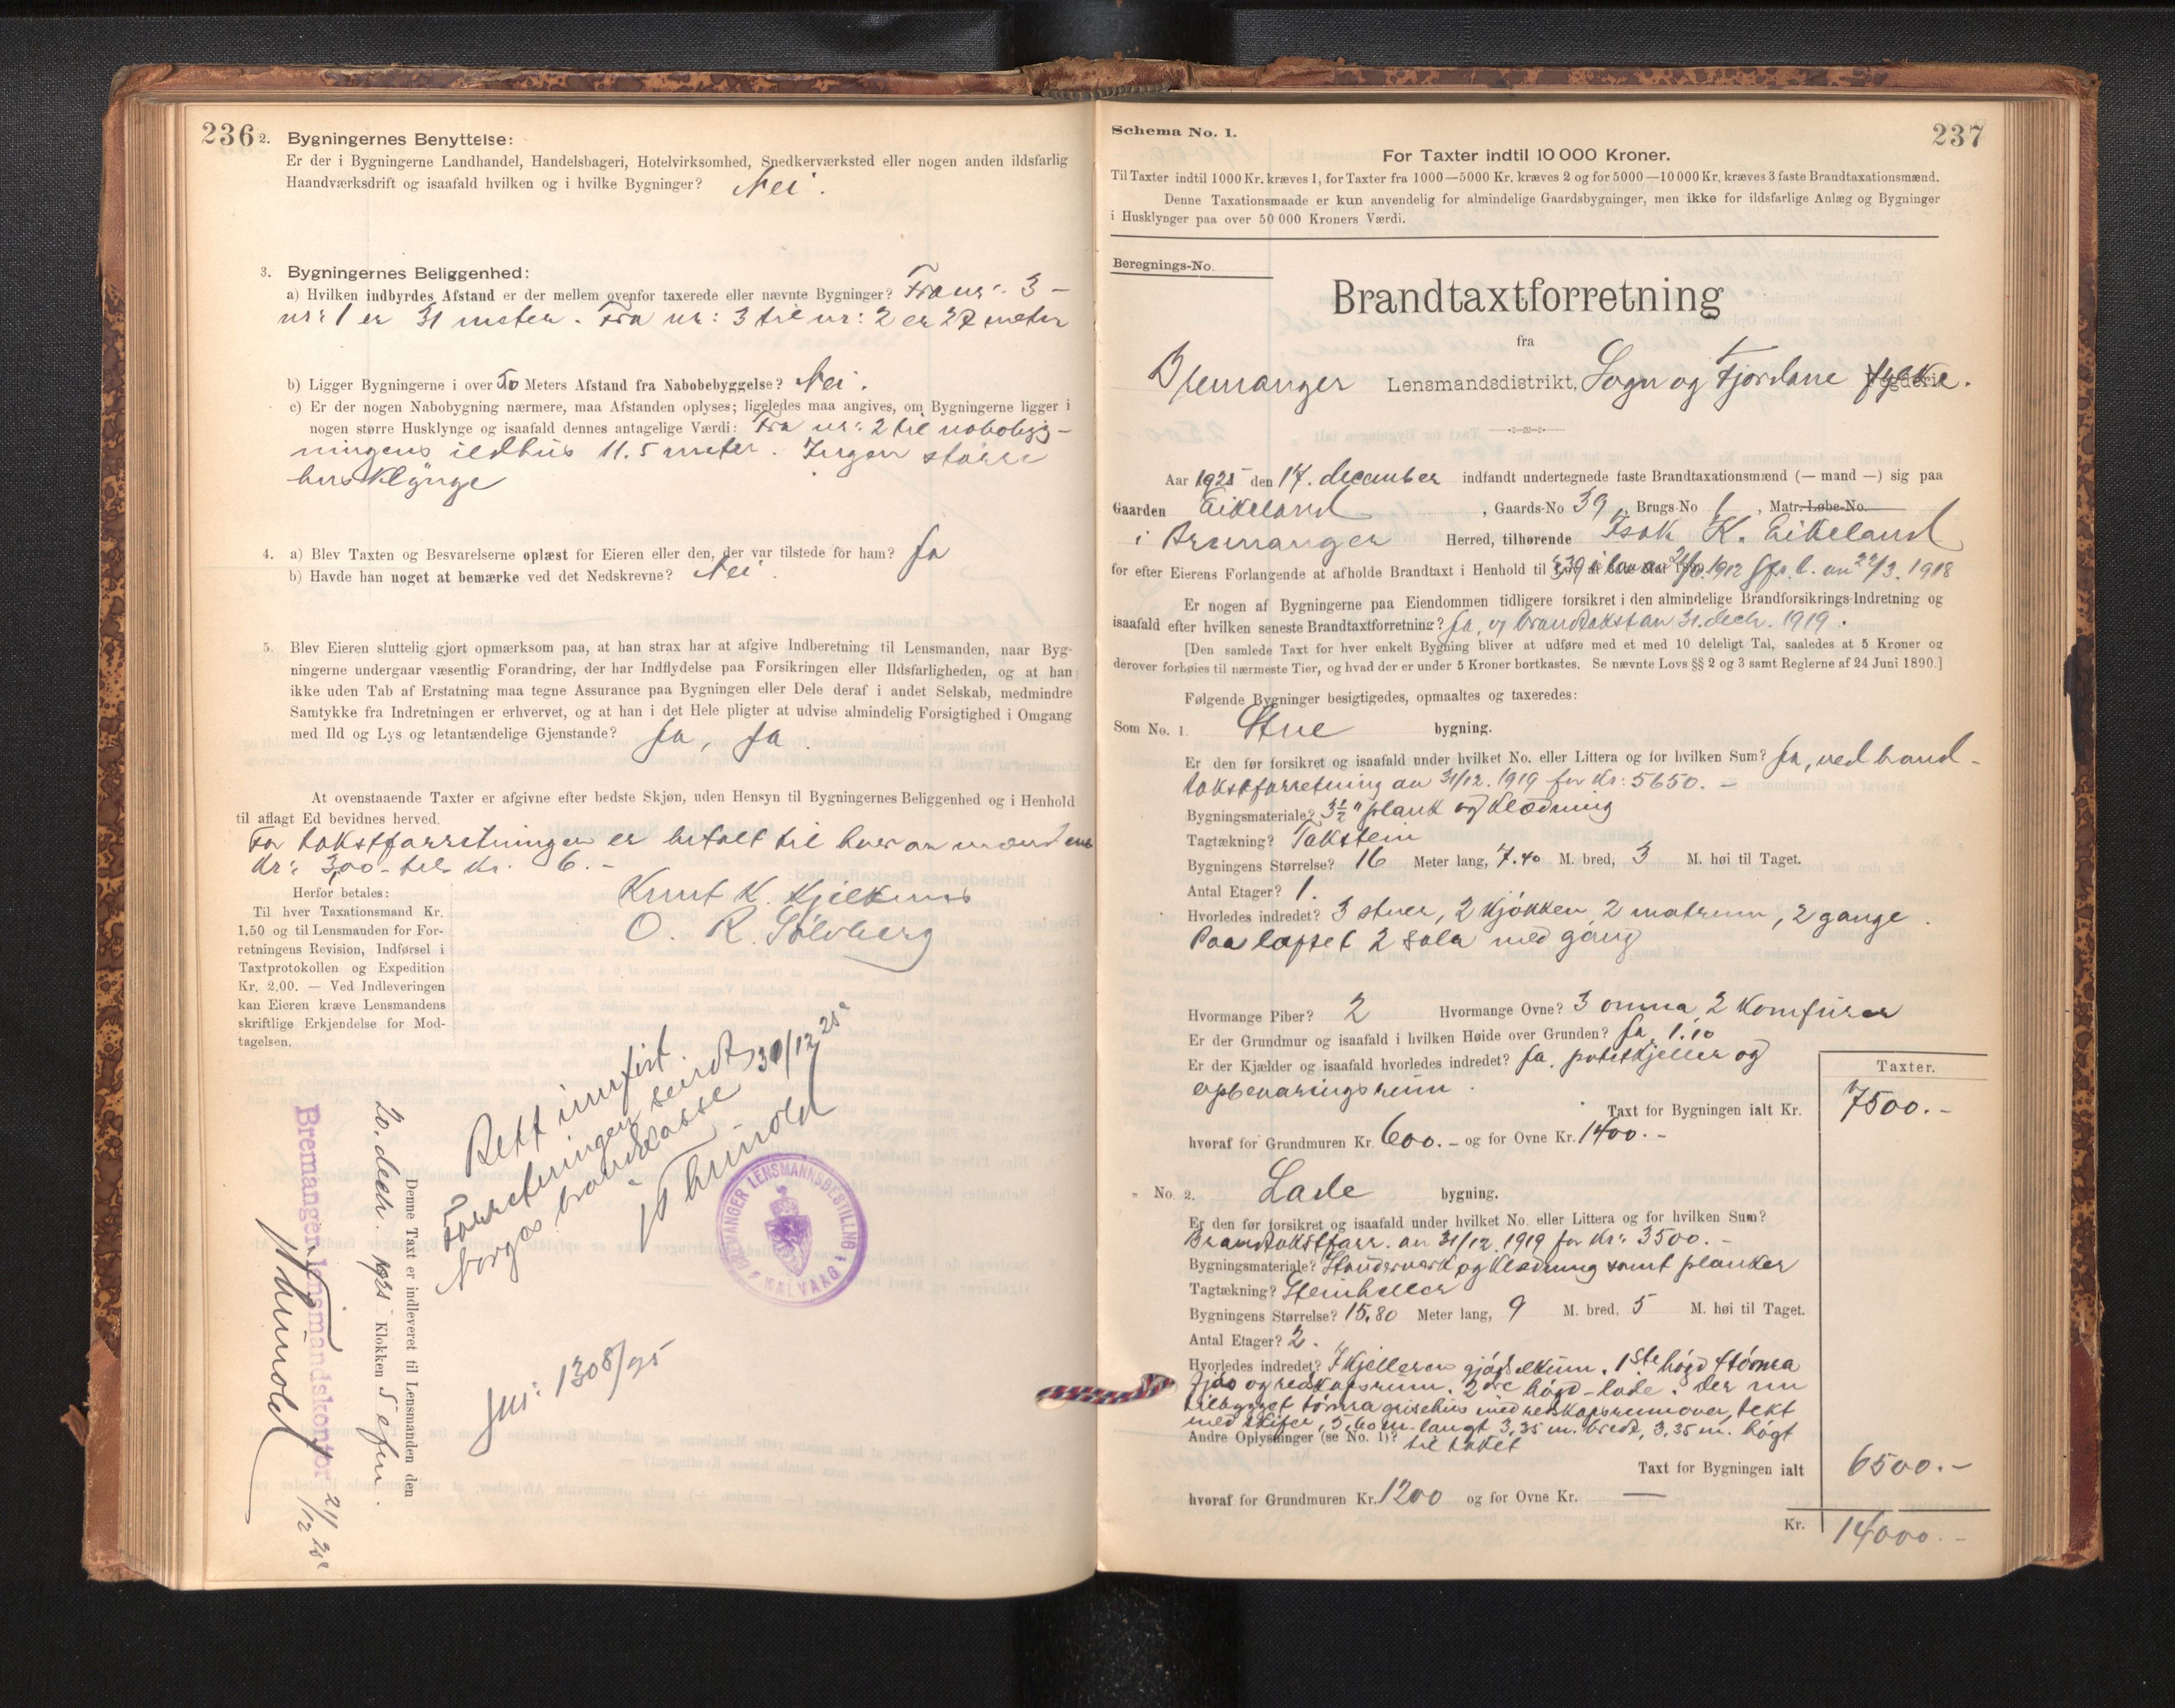 236
2. Bygningernes Benyttelse:
Er der i Bygningerne Landhandel, Handelsbageri, Hotelvirksomhed, Snedkerværksted eller nogen anden ildsfarlig
Haandværksdrift og isaafald hvilken og i hvilke Bygninger? Nei.
3. Bygningernes Beliggenhed:
a) Hvilken indbyrdes Afstand er der mellem ovenfor taxerede eller nævnte Bygninger? Fra nr: 3 –
nr: 1 er 31 meter. Fra nr: 3 til nr: 2 er 27 meter
b) Ligger Bygningerne i over 50 Meters Afstand fra Nabobebyggelse? Nei.
c) Er der nogen Nabobygning nærmere, maa Afstanden oplyses; ligeledes maa angives, om Bygningerne ligger i
nogen større Husklynge og isaafald dennes antagelige Værdi: Fra nr: 2 til nabobyg-
ningens ildhus 11.5 meter. Ingen større
husklynge
4. a) Blev Taxten og Besvarelserne oplæst for Eieren eller den, der var tilstede for ham? Ja
b) Havde han noget at bemærke ved det Nedskrevne? Nei.
5. Blev Eieren sluttelig gjort opmærksom paa, at han strax har at afgive Indberetning til Lensmanden, naar Byg-
ningerne undergaar væsentlig Forandring, der har Indflydelse paa Forsikringen eller Ildsfarligheden, og at han
ikke uden Tab af Erstatning maa tegne Assurance paa Bygningen eller Dele deraf i andet Selskab, medmindre
Samtykke fra Indretningen er erhvervet, og at han i det Hele pligter at udvise almindelig Forsigtighed i Omgang
med Ild og Lys og letantændelige Gjenstande? Ja, ja.
At ovenstaaende Taxter er afgivne efter bedste Skjøn, uden Hensyn til Bygningernes Beliggenhed og i Henhold
til aflagt Ed bevidnes herved.
For takstforretningen er betalt til hver av mændene
kr: 3,00 – tils kr. 6. –
Herfor betales:
Til hver Taxationsmand Kr.
1,50 og til Lensmanden for For-
retningens Revision, Indførsel i
Taxtprotokollen og Expedition
Kr. 2,00. — Ved Indleveringen
kan Eieren kræve Lensmandens
skriftlige Erkjendelse for Mod-
tagelsen.
Knut K.
O. R. Sølvberg
Rett innført.
Forretningen sendt
Norges brandkasse 30/12 25
BREMANGER LENSMANNSBESTILLING
KALVAAG
Jnr: 1308/25
Denne Taxt er indleveret til Lensmanden den
20. decbr. 1925 Klokken 5 efm.
Bremanger lensmandskontor 21/12 25
237
Schema No. 1.
For Taxter indtil 10 000 Kroner.
Til Taxter indtil 1000 Kr. kræves 1, for Taxter fra 1000—5000 Kr. kræves 2 og for 5000—10 000 Kr. kræves 3 faste Brandtaxationsmænd.
Denne Taxationsmaade er kun anvendelig for almindelige Gaardsbygninger, men ikke for ildsfarlige Anlæg og Bygninger
i Husklynger paa over 50 000 Kroners Værdi.
Beregnings-No.
Brandtaxtforretning
fra
Bremanger Lensmandsdistrikt, Sogn og Fjordane fylke.
Aar 1925 den 17. december indfandt undertegnede faste Brandtaxationsmænd (— mand —) sig paa
Gaarden Eikeland, Gaards-No 39, Brugs-No 1, Matr.-Løbe-No.
i Bremanger Herred, tilhørende Isak K. Eikeland
for efter Eierens Forlangende at afholde Brandtaxt i Henhold til § 39 i lov av 1912 jfr. l. av 22/3. 1918
Er nogen af Bygningerne paa Eiendommen tidligere forsikret i den almindelige Brandforsikrings-Indretning og
isaafald efter hvilken seneste Brandtaxtforretning? Ja, v/ brandtakst av 31. decbr. 1919.
[Den samlede Taxt for hver enkelt Bygning bliver at udføre med et med 10 deleligt Tal, saaledes at 5 Kroner og
derover forhøies til nærmeste Tier, og hvad der er under 5 Kroner bortkastes. Se nævnte Lovs §§ 2 og 3 samt Reglerne af 24 Juni 1890.]
Følgende Bygninger besigtigedes, opmaaltes og taxeredes:
Som No. 1. Stue bygning.
Er den før forsikret og isaafald under hvilket No. eller Littera og for hvilken Sum? Ja, ved brand-
takstforretning av 31/12. 1919 for kr: 5650. –
Bygningsmateriale? 3½" plank og klædning
Tagtækning? Takstein
Bygningens Størrelse? 16 Meter lang, 7.40 M. bred, 3 M. høi til Taget.
Antal Etager? 1.
Hvorledes indredet? 3 stuer, 2 kjøkken, 2 matrum, 2 gange.
Paa loftet 2 sale med gang
Hvormange Piber? 2 Hvormange Ovne? 3 omna, 2 komfurer
Er der Grundmur og isaafald i hvilken Høide over Grunden? Ja, 1.10
Er der Kjælder og isaafald hvorledes indredet? Ja, potetkjeller og
opbevaringsrum.
Taxter.
Taxt for Bygningen ialt Kr. 7500. –
hvoraf for Grundmuren Kr. 600. – og for Ovne Kr. 1400. –
„ No. 2. Lade bygning.
Er den før forsikret og isaafald under hvilket No. eller Littera og for hvilken Sum?
Brandtakstforr. av 31/12. 1919 for kr: 3500. –
Bygningsmateriale? Standerverk og klædning samt planker
Tagtækning? Steinheller
Bygningens Størrelse? 15,80 Meter lang, 9 M. bred, 5 M. høi til Taget.
Antal Etager? 2.
Hvorledes indredet? I kjelleren gjødselrum. 1ste høgd tømra
fjøs og redskapsrum. 2dre høgd – lade. Der nu
tilbygget tømra grisehus med redskapsrum over, tekt
med skifer, 5,60 m. langt 3,35 m. bredt, 3,35 m. høgt
Andre Oplysninger (se No. 1)? til taket
Taxt for Bygningen ialt 6500. –
hvoraf for Grundmuren Kr. 1200 og for Ovne Kr. —
Kr. 14000. –